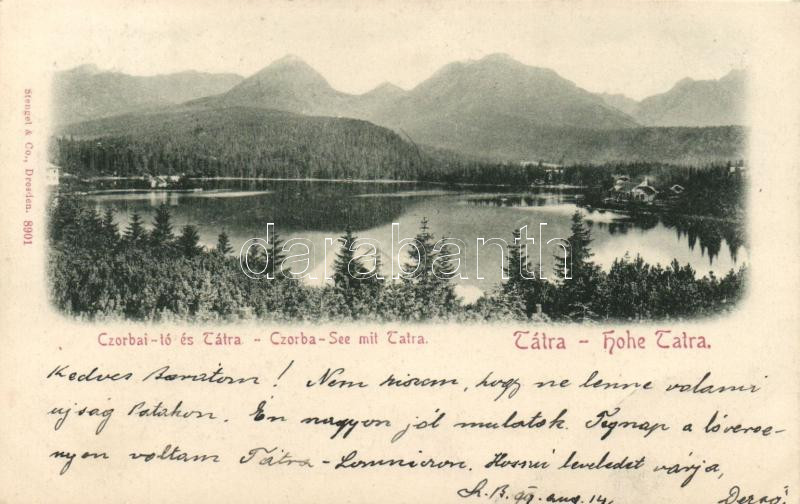 Stengel & Co., Dresden. 8901
darabanth
Czorbai-tó és Tátra - Czorba-See mit Tatra.
Tátra - Hohe Tatra.
Kedves Barátom! Nem hiszem, hogy ne lenne valami
ujság Patakon. Én nagyon jól mulatok. Tegnap a lóverse-
nyen voltam Tátra-Lomniczon. Hosszú leveledet várja,
99. aug. 14. Dezső